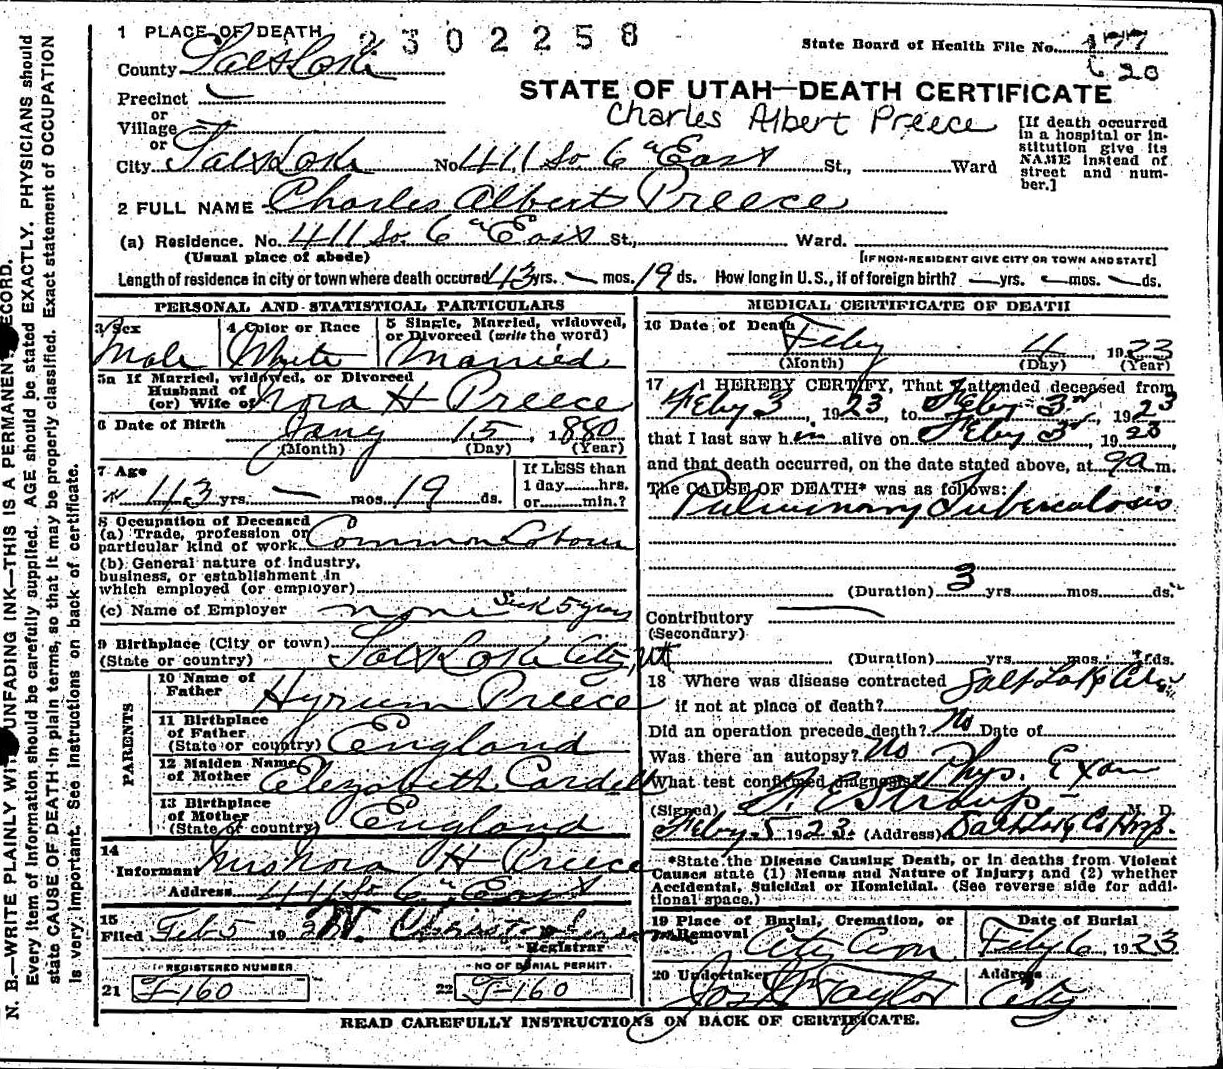 1 PLACE OF DEATH 2302258
State Board of Health File No. 177
County Salt Lake
620
Precinct
or
Village
or
STATE OF UTAH—DEATH CERTIFICATE
Charles Albert Preece
[If death occurred in a hospital or institution give its NAME instead of street and number.]
City Salt Lake No. 411 So 6th East St., Ward
2 FULL NAME Charles Albert Preece
(a) Residence. No. 411 So. 6th East St., Ward.
(Usual place of abode) [IF NON-RESIDENT GIVE CITY OR TOWN AND STATE]
Length of residence in city or town where death occured 43 yrs. — mos. 19 ds. How long in U.S., if of foreign birth? — yrs. — mos. — ds.
PERSONAL AND STATISTICAL PARTICULARS
3 Sex
Male
4 Color or Race
White
5 Single, Married, widowed, or Divorced (write the word)
Married
5a If Married, widowed, or Divorced
Husband of
(or) Wife of Nora H Preece
6 Date of Birth Jany 15, 1880
(Month) (Day) (Year)
7 Age
43 yrs. — mos. 19 ds.
If LESS than
1 day hrs.
or min.?
8 Occupation of Deceased
(a) Trade, profession or
particular kind of work Common Labour
(b) General nature of industry,
business, or establishment in
which employed (or employer)
(c) Name of Employer none Sick 5 years
9 Birthplace (City or town)
(State or country) Salt Lake City, Ut
PARENTS
10 Name of
Father Hyrum Preece
11 Birthplace
of Father
(State or country) England
12 Maiden Name
of Mother Elizabeth Cardell
13 Birthplace
of Mother
(State or country) England
14
Informant Mrs Nora H Preece
Address 411 So 6th East
15
Filed Feb 5 19
Registrar
REGISTERED NUMBER
21 J-160
NO OF BURIAL PERMIT
22 J-160
MEDICAL CERTIFICATE OF DEATH
16 Date of Death
Feby 4, 1923
(Month) (Day) (Year)
17 I HEREBY CERTIFY, That I attended deceased from
Feby 3, 1923 to Feby 3rd, 1923
that I last saw him alive on Feby 3rd, 1923,
and that death occurred, on the date stated above, at 9a m.
The CAUSE OF DEATH* was as follows:
Pulmonary Tuberculosis
(Duration) 3 yrs. mos. ds.
Contributory
(Secondary)
(Duration) yrs. mos. ds.
18 Where was disease contracted Salt Lake City
if not at place of death?
Did an operation precede death? No Date of
Was there an autopsy? No
What test confirmed diagnosis? Phys. Exam
(Signed) M. D.
Feby 5 1923. (Address) Salt Lake Co Hosp.
*State the Disease Causing Death, or in deaths from Violent
Causes state (1) Means and Nature of Injury; and (2) whether
Accidental, Suicidal or Homicidal. (See reverse side for additional space.)
19 Place of Burial, Cremation, or
Removal City Cem
Date of Burial
Feby 6, 1923
20 Undertaker
Jos Wm Taylor
Address
City
READ CAREFULLY INSTRUCTIONS ON BACK OF CERTIFICATE.
N. B.—WRITE PLAINLY WITH UNFADING INK—THIS IS A PERMANENT RECORD.
Every item of information should be carefully supplied. AGE should be stated EXACTLY. PHYSICIANS should
state CAUSE OF DEATH in plain terms, so that it may be properly classified. Exact statement of OCCUPATION
is very important. See instructions on back of certificate.